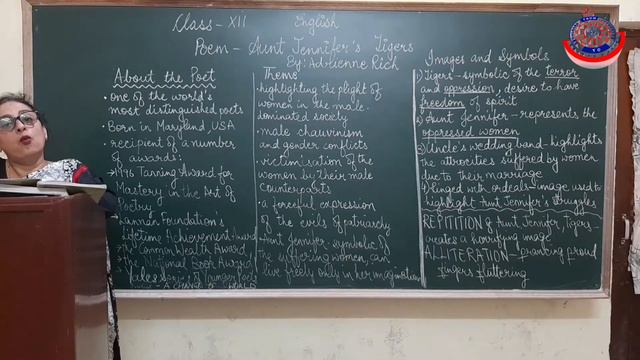 Class - XII English
Poem - Aunt Jennifer's Tigers
By: Adrienne Rich
About the Poet
• one of the world's
most distinguished poets
• Born in Maryland, USA
• recipient of a number
of awards:
→ 1996 Tanning Award for
Mastery in the Art of
Poetry
→ Lannan Foundation's
Lifetime Achievement Award
→ Common Wealth Award
→ National Book Award
→ Yale Series of Younger Poets
- A CHANGE OF WORLD
Theme
• highlighting the plight of
women in the male-
dominated society
• male chauvinism
and gender conflicts
• victimisation of the
women by their male
counterparts
• a forceful expression
of the evils of patriarchy
• Aunt Jennifer - symbolic of
the suffering women, can
live freely only in her imagination
Images and Symbols
1) Tigers - symbolic of the terror
and oppression, desire to have
freedom of spirit
2) Aunt Jennifer - represents the
oppressed women
3) Uncle's wedding band - highlights
the atrocities suffered by women
due to their marriage
4) Ringed with ordeals - image used to
highlight Aunt Jennifer's struggles
REPTITION of Aunt Jennifer Tigers -
creates a horrifying image
ALLITERATION - prancing proud
fingers fluttering